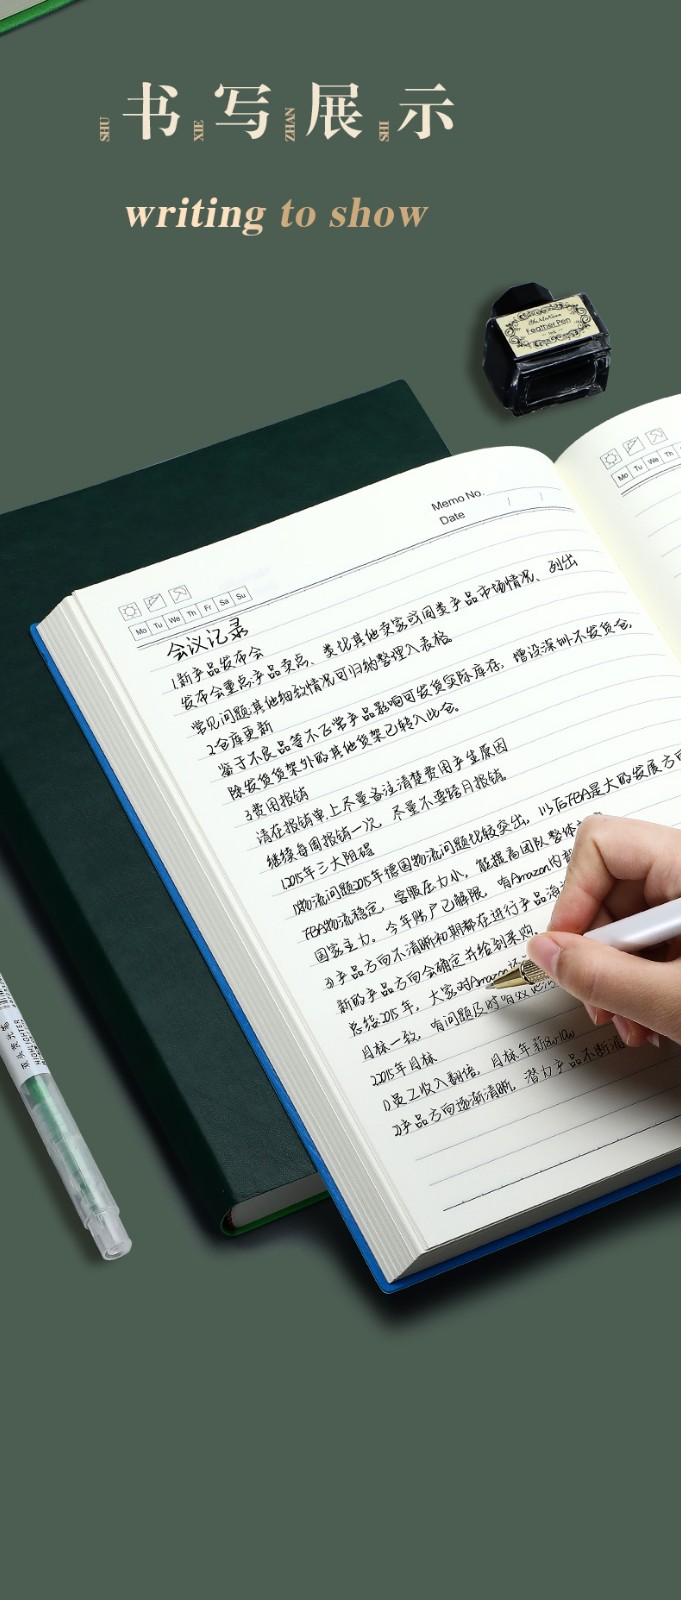 书写展示
SHU XIE ZHAN SHI
writing to show
Feather Pen
Memo No.
Date
Mo Tu We Th Fr Sa Su
Mo Tu We Th
会议记录
1.新产品发布会
发布会重点:产品卖点、类比其他卖家或同类产品市场情况、列出
常见问题,其他细致情况可归纳整理入表格
2仓库更新
鉴于不良品等不正常产品影响可发货实际库存,增设深圳不发货仓,
除发货货架外的其他货架已转入此仓。
3费用报销
请在报销单上尽量备注清楚费用产生原因
继续每周报销一次,尽量不要跨月报销
1.2015年三大阻碍
1)物流问题2015年德国物流问题比较突出,以后FBA是大的发展方向
FBA物流稳定,客服压力小,能提高团队整体
国家主力。今年账户已解限,有Amazon内部
3)产品方向不清晰初期都在进行产品海
新的产品方向会确定并给到采购。
总结2015年,大家对Amazon
目标一致,有问题及时
2.2015年目标
1)员工收入翻倍,目标年薪8w-10w
2)产品方向逐渐清晰,潜力产品不断
双头荧光笔
HIGHLIGHTER